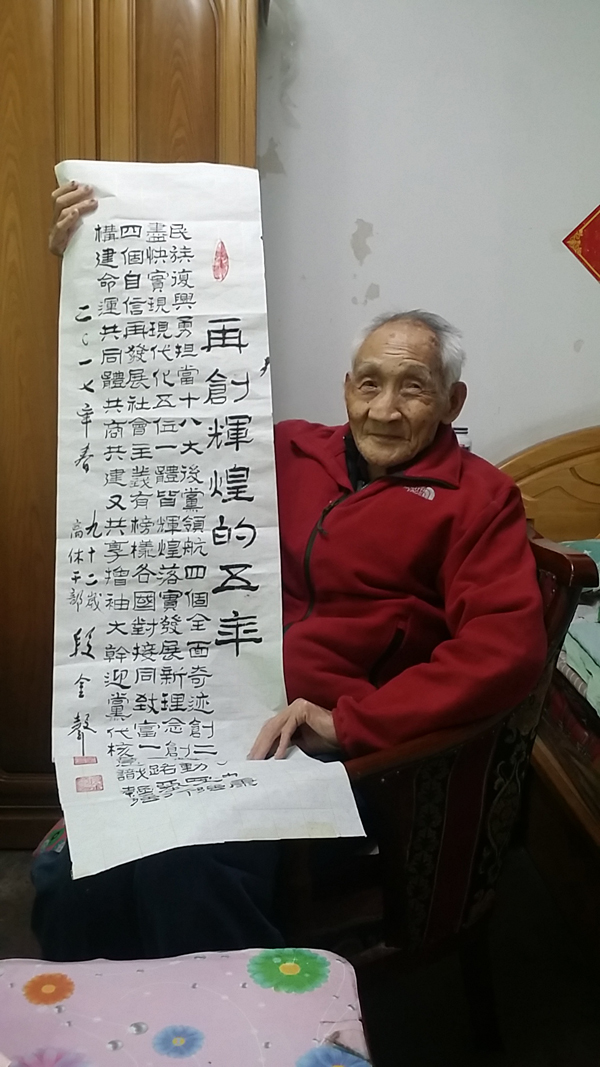 再創輝煌的五年
民族復興勇担當十八大後黨領航四個全面奇迹創二
盡快實現現代化五伍一體皆輝煌落實發展新理念創
四個自信再發展社會主義有榜樣各國對接同致富一路
構建命運共同體共商共建又共享擼袖大幹迎黨代核
二〇一七年春
九十二歲
高休干部
段金聲